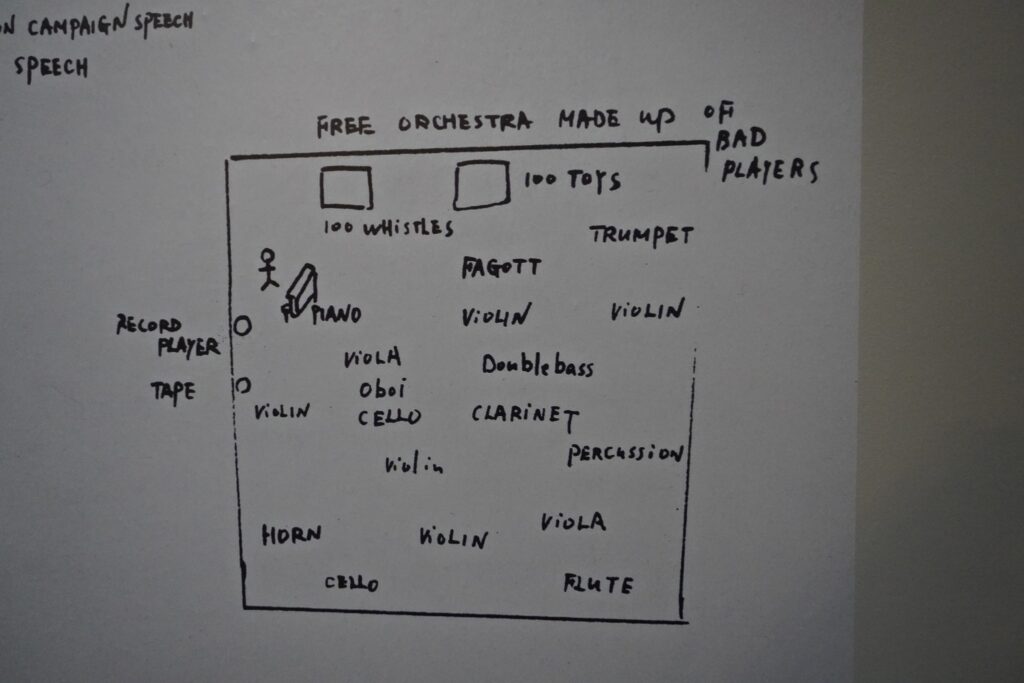 ON CAMPAIGN SPEECH
SPEECH
FREE ORCHESTRA MADE UP OF
BAD
PLAYERS
100 TOYS
100 WHISTLES
TRUMPET
FAGOTT
PIANO
VIOLIN
VIOLIN
RECORD
PLAYER
VIOLA
Doublebass
TAPE
Oboi
VIOLIN
CELLO
CLARINET
PERCUSSION
Violin
VIOLA
HORN
VIOLIN
CELLO
FLUTE